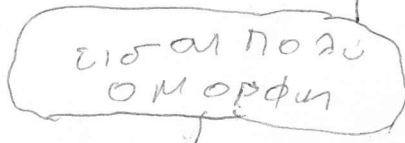 εισαι πολυ
ομορφη